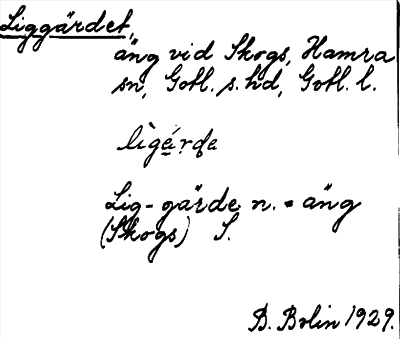 Liggärdet,
äng vid Skogs, Hamra
sn, Gotl. s. hd, Gotl. l.
lìgá̈rdɐ
Lig-gärde n. = äng
(Skogs) S.
B. Bolin 1929.